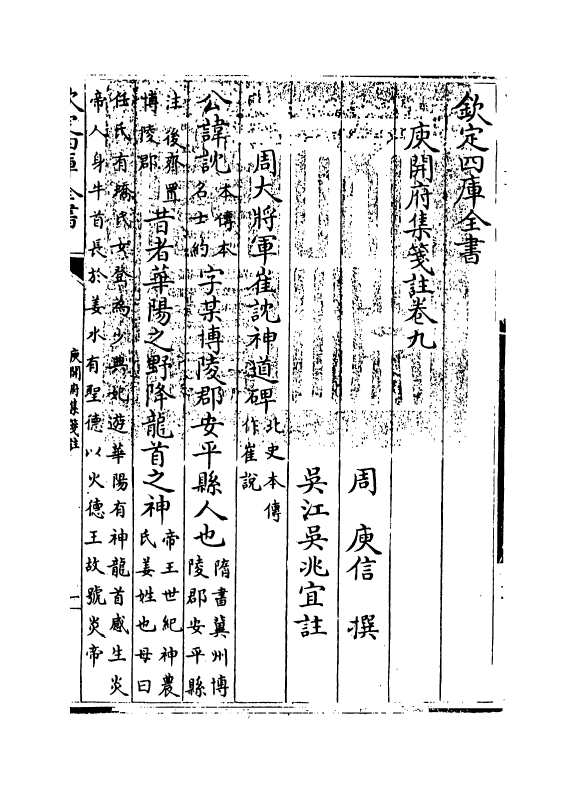 欽定四庫全書
庾開府集箋註卷九
周 庾信 撰
吳江吳兆宜註
周大將軍崔訦神道碑北史本傳作崔説
公諱訦本傳本名士約字某博陵郡安平縣人也隋書冀州博陵郡安平縣
注後齊置博陵郡昔者華陽之野降龍首之神帝王世紀神農氏姜姓也母曰
任氏有蟜氏女登為少典妃遊華陽有神龍首感生炎
帝人身牛首長於姜水有聖德以火德王故號炎帝
欽定四庫全書
庾開府集箋註
一